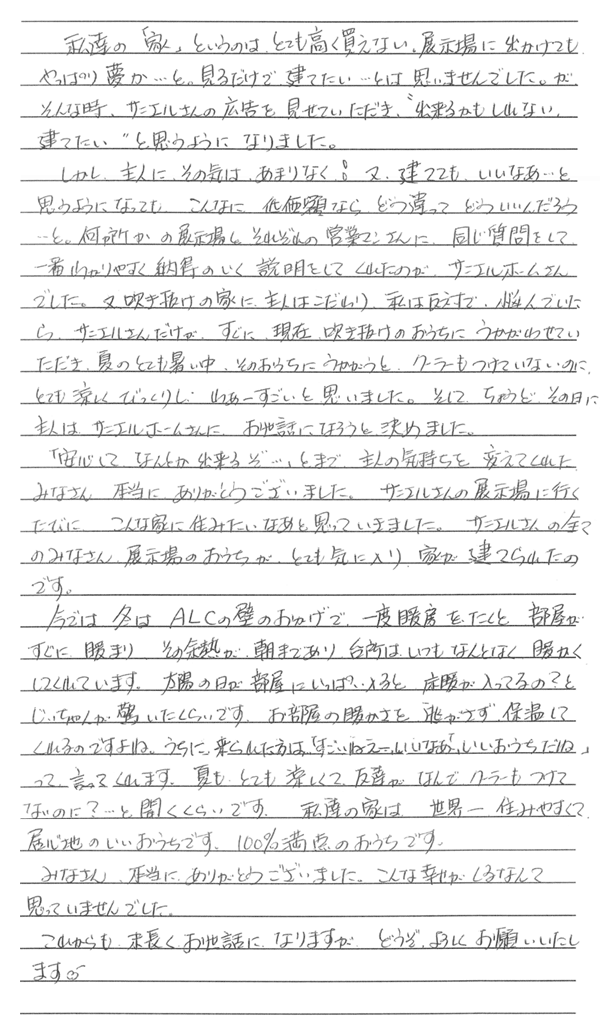 私達の「家」というのは、とても高く買えない。展示場に出かけても
やっぱり夢か…と。見るだけで建てたい…とは思いませんでした。が、
そんな時、サニエルさんの広告を見せていただき、"出来るかもしれない、
建てたい"と思うようになりました。
しかし、主人に、その気は、あまりなく!又、建てても、いいなあ…と
思うようになっても、こんなに低価額なら、どう違ってどういいんだろう
…と。何ヶ所かの展示場と、それぞれの営業マンさんに、同じ質問をして
一番わかりやすく納得のいく説明をしてくれたのが、サニエルホームさん
でした。又、吹き抜けの家に、主人はこだわり、私は反対で、悩んでいた
ら、サニエルさんだけが、すぐに、現在、吹き抜けのおうちにうかがわせてい
ただき、夏のとても暑い中、そのおうちにうかがうと、クーラーもつけていないのに、
とても涼しくびっくりし、わぁーすごいと思いました。そして、ちょうど、その日に
主人は、サニエルホームさんに、お世話になろうと決めました。
「安心して、なんとか出来るぞ…」とまで、主人の気持ちを変えてくれた
みなさん、本当に、ありがとうございました。サニエルさんの展示場に行く
たびに、こんな家に住みたいなあと思っていきました。サニエルさんの全て
のみなさん、展示場のおうちが、とても気に入り、家が建てられたの
です。
今では、冬は、ALCの壁のおかげで、一度暖房をたくと、部屋が
すぐに、暖まり、その余熱が、朝まであり、台所は、いつもなんとなく暖かく
してくれています。太陽の日が部屋にいっぱい入ると、床暖が入ってるの?と
じいちゃんが驚いたくらいです。お部屋の暖かさを逃がさず、保温して
くれるのですよね。うちに、来られた方は、「すごいねえー、いいなあ」「いいおうちだね」
って、言ってくれます。夏も、とても涼しくて、友達が、なんでクーラーもつけて
ないのに?…と聞くくらいです。私達の家は、世界一住みやすくて、
居心地のいいおうちです。100%満点のおうちです。
みなさん、本当に、ありがとうございました。こんな幸せがくるなんて
思っていませんでした。
これからも、末長くお世話に、なりますが、どうぞ、よろしくお願いいたし
ます